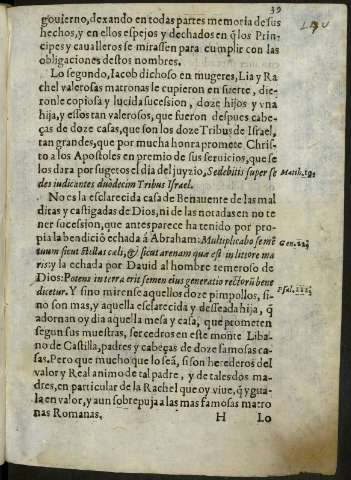 39
gouierno, dexando en todas partes memoria de sus
hechos, y en ellos espejos y dechados en q̃ los Prin-
cipes y caualleros se mirassen para cumplir con las
obligaciones destos nombres.
Lo segundo, Iacob dichoso en mugeres, Lia y Ra
chel valerosas matronas le cupieron en suerte, die-
ronle copiosa y lucida sucession, doze hijos y vna
hija, y essos tan valerosos, que fueron despues cabe-
ças de doze casas, que son los doze Tribus de Israel,
tan grandes, que por mucha honra promete Chris-
to a los Apostoles en premio de sus seruicios, que se
los dara por sugetos el dia del juyzio, Sedebitis super se
des iudicantes duodecim Tribus Israel.
Math. 19.
No es la esclarecida casa de Benauente de las mal
ditas y castigadas de Dios, ni de las notadas en no te
ner sucession, que antes parece ha tenido por pro-
pia la bendiciõ echada â Abraham: Multiplicabo semẽ
Gen. 22.
tuum sicut stellas cæli, & sicut arenam quæ est in littore ma
ris: y la echada por Dauid al hombre temeroso de
Dios: Potens in terra erit semen eius generatio rectorũ bene
dicetur. Y sino mirense aquellos doze pimpollos, si-
Psal. 111.
nõ son mas, y aquella esclarecida y desseada hija, q̃
adornan oy dia aquella mesa y casa, que prometen
segun sus muestras, ser cedros en este monte Liba-
no de Castilla, padres y cabeças de doze famosas ca-
sas. Pero que mucho que lo seã, si son herederos del
valor y Real animo de tal padre, y de tales dos ma-
dres, en particular de la Rachel que oy viue, q̃ ygua-
la en valor, y aun sobrepuja a las mas famosas matro
nas Romanas.
H Lo